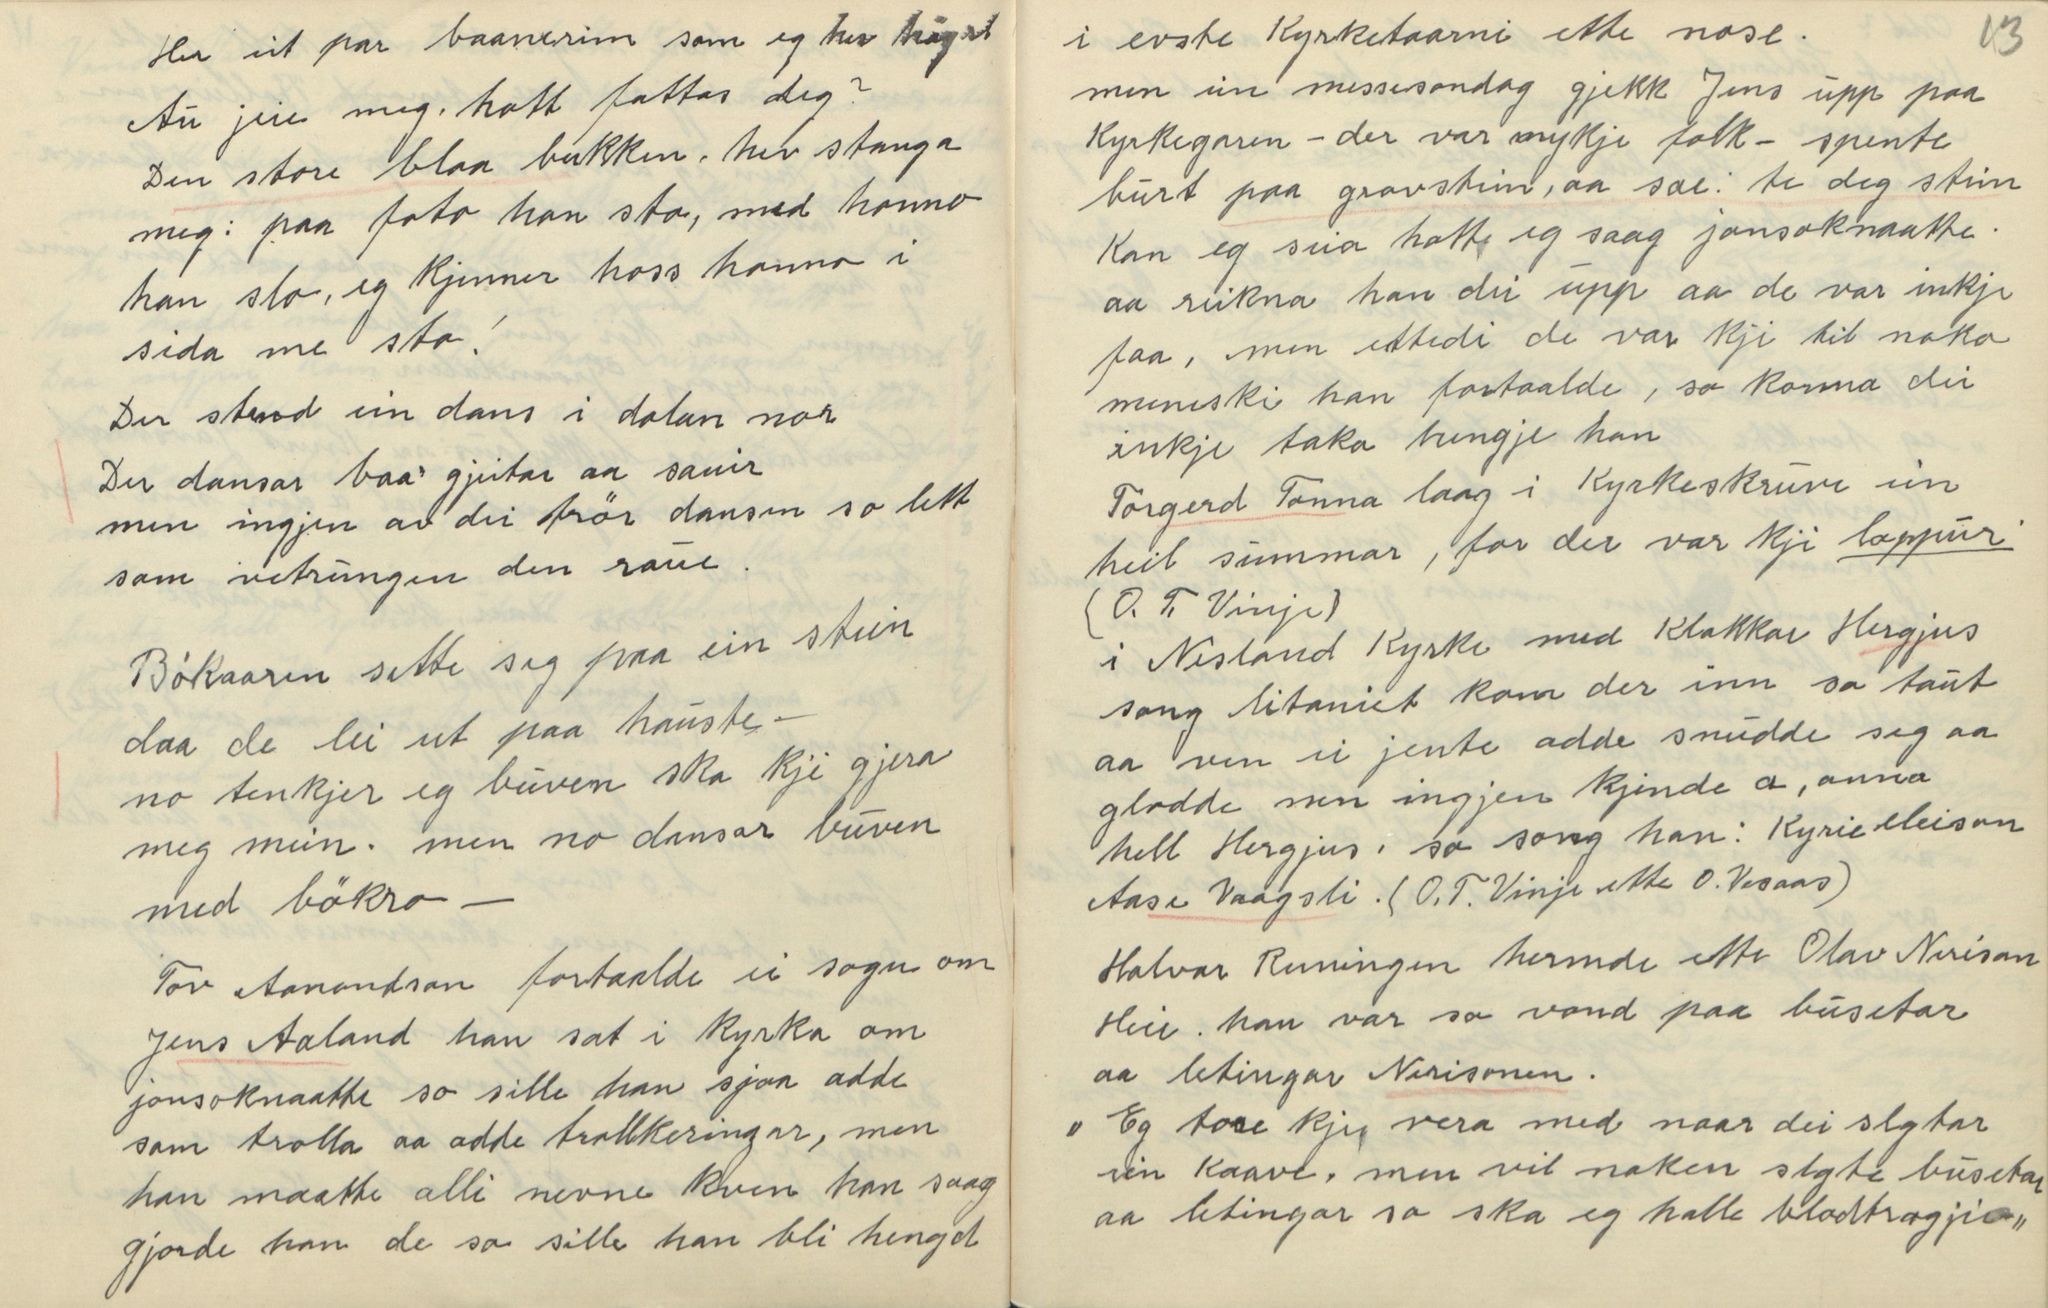 Her eit par baanerim som eg hev høyrt
Au jeie meg. hott fattas deg?
Den store blaa bukken. hev stanga
meg: paa foto han sto, med honno
han slo, eg kjenner hoss honno i
sida me sto!
Der stend ein dans i dalan nor
Der dansar baa' gjeitar aa sauir
men ingjen av dei frör dansen so lett
som vetrungen den raue.
Bökaaren sette seg paa ein stein
daa de lei ut paa hauste –
no tenkjer eg buven ska kji gjera
meg mein. men no dansar buven
med bökro –
Tov Aamondson fortaalde ei sogu om
Jens Aaland han sat i kyrka om
jonsoknaatte so sille han sjaa adde
som trolla aa adde trollkeringar, men
han maatte alli nevne kven han saag
gjorde han de so sille han bli hengd
13
i evste Kyrketaarni ette nose.
men ein messesondag gjekk Jens upp paa
Kyrkegaren – der var mykje folk – spente
burt paa gravstein, aa sae: te deg stein
Kan eg seia hott eg saag jonsoknaatte.
aa reikna han dei upp aa de var inkje
faa, men ettedi de var kji til noko
meneski han fortaalde, so konna dei
inkje taka bungje han
Torgerd Tonna laag i Kyrkeskruve ein
heil summar, for der var kji loppur
(O. T. Vinje)
i Nesland Kyrke med Klokkar Hergjus
song litaniet kom der inn so taut
aa ven ei jente adde snudde seg aa
glodde men ingjen kjinde a, onna
hell Hergjus. so song han: Kyrie eleison
Aase Vaagsli. (O.T. Vinje ette O. Vesaas)
Halvor Runingen hermde ette Olav Nerison
Heie. han var so vond paa busetar
aa letingar Nerisonen.
" Eg tore kji vera med naar dei slgtar
ein Kaave. men vil noken slgte busetar
aa letingar so ska eg halle blodtrogji"